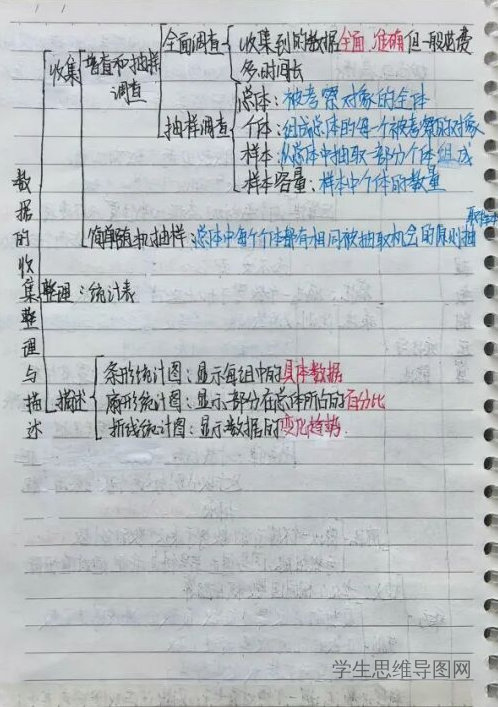 全面调查 收集到的数据全面、准确但一般花费
多时间长
收集 普查和抽样
调查
抽样调查
总体：被考察对象的全体
个体：组成总体的每一个被考察的对象
样本：从总体中抽取一部分个体组成
样本容量：样本中个体的数量
简单随机抽样：总体中每个个体都有相同被抽取机会的原则抽
数据的收集整理与描述
整理：统计表
描述
条形统计图：显示每组中的具体数据
扇形统计图：显示部分在总体所占的百分比
折线统计图：显示数据的变化趋势
学生思维导图网